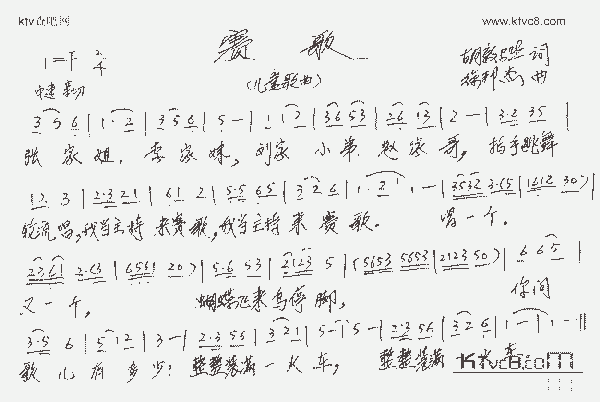 ktv伴吧网
www.ktvc8.com
赛 歌
1=F 2/4
(儿童歌曲)
词
曲
3 5 6 | 1· 2 | 3 5 6 | 5 - | 1 1 2 | 36 53 | 26 13 | 2 - | 3·2 35 |
张家姐,李家妹,刘家小弟赵家哥,拍手跳舞
12 3 | 2·3 21 | 61 2 | 5·5 65 | 3 2 6 | 1· 2 | 1 - | 3532 3·55 | 1612 30 ) |
轮流唱,我当主持来赛歌,我当主持来赛歌. 唱一个.
2361 2·63 | 6551 20 ) | 5·6 53 | 2123 5 | (5653 5653 | 2123 50 ) | 6 65 |
又一个, 蝴蝶飞来鸟停脚, 你问
3·5 6 | 5 12 | 3 - | 2·3 55 | 321 | 5 - | 5 - | 2·3 56 | 32 6 | 1 - | 1 - ||
歌儿有多少?整整装满一火车, 整整装满
ktvc8.com